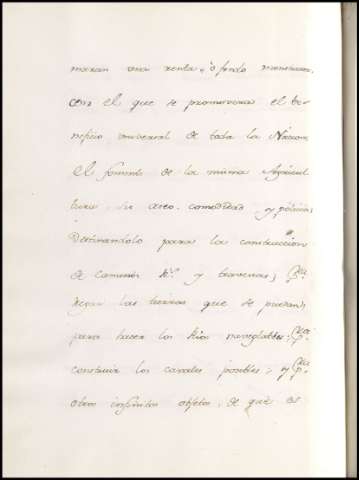 maran una renta, ò fondo
con el que se promoviera el be-
neficio universal de toda la Nacion
el fomento de la misma Agricul
tura, su aseo, comodidad y policia,
Destinandolo para la construccion
de Caminos Rs. y traversas, pra.
regar las tierras que se puedan,
para hacer los Rios navegables, pra.
construir los canales posibles, y pra.
otros infinitos objetos, de que es